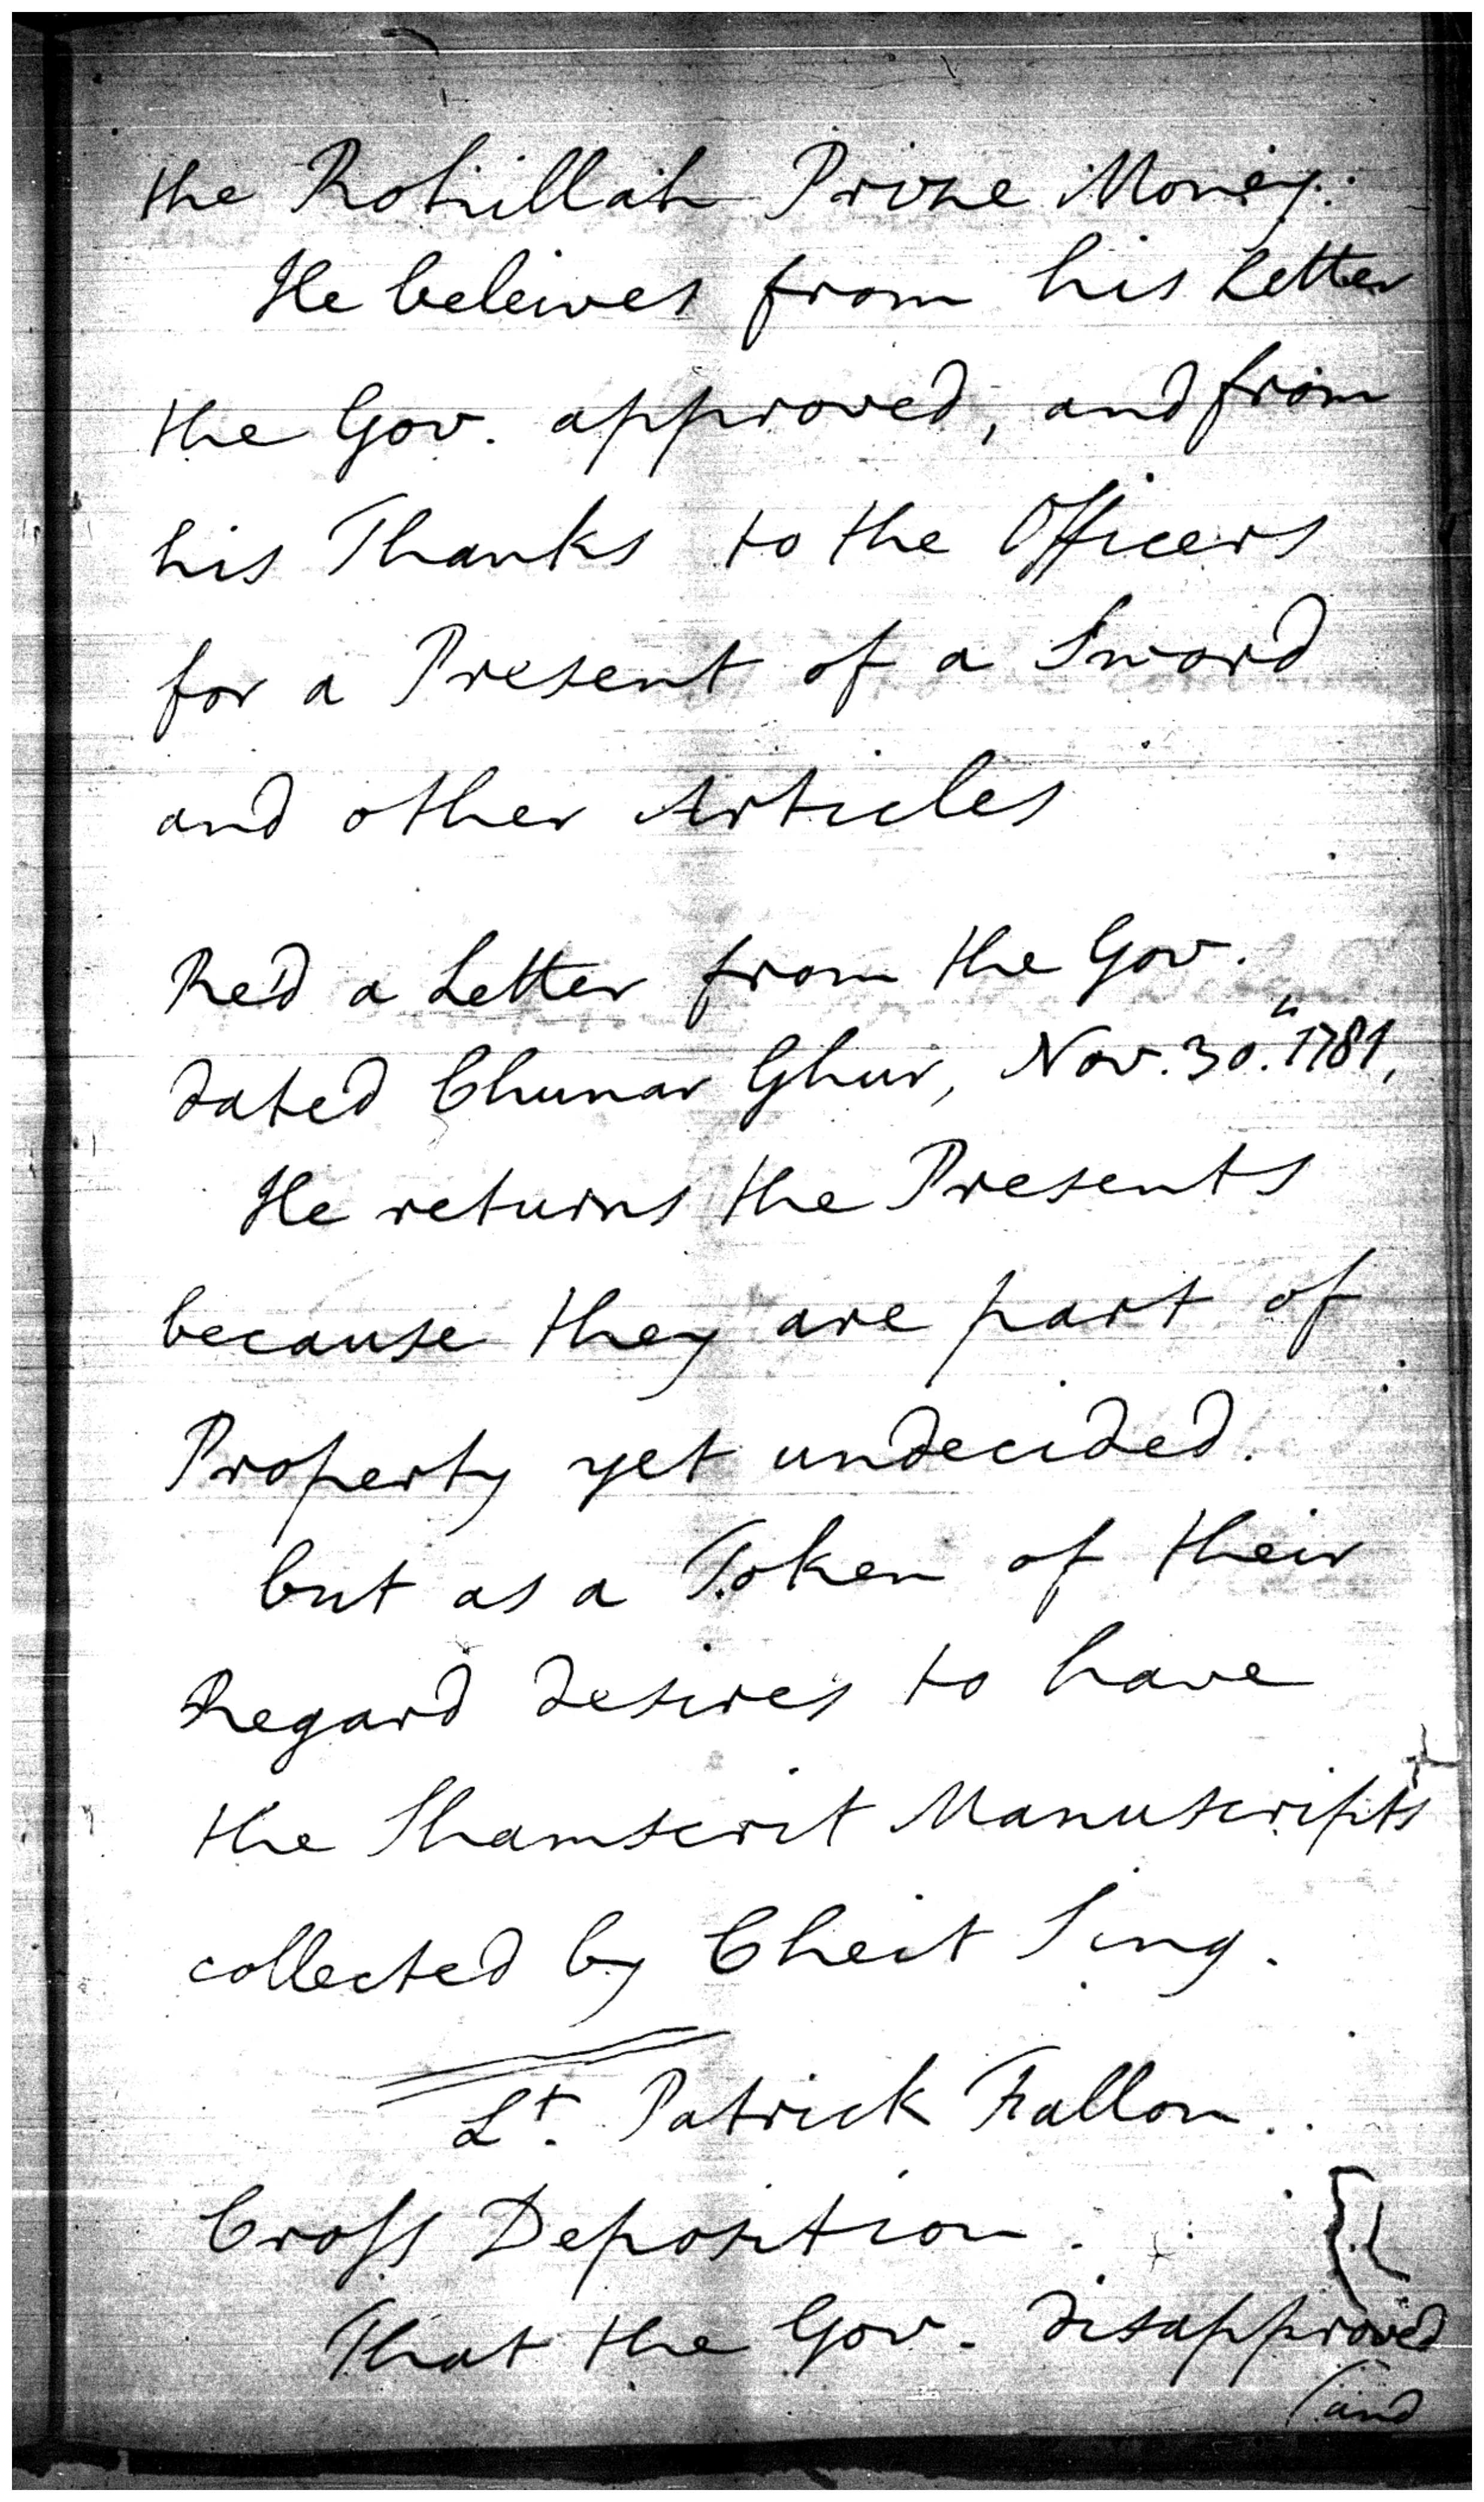 the Rohillah Prize Money.
He beleives from his Letter
the Gov. approved, and from
his Thanks to the Officers
for a Present of a Sword
and other Articles
Re'd a Letter from the Gov.
dated Chunar Ghur, Nov. 30.th 1781,
He returns the Presents
because they are part of
Property yet undecided.
but as a Token of their
Regard desires to have
the Shamscrit Manuscripts
collected by Cheit Sing.
Lt. Patrick Fallon.
Cross Deposition.
That the Gov. disapproved
(and